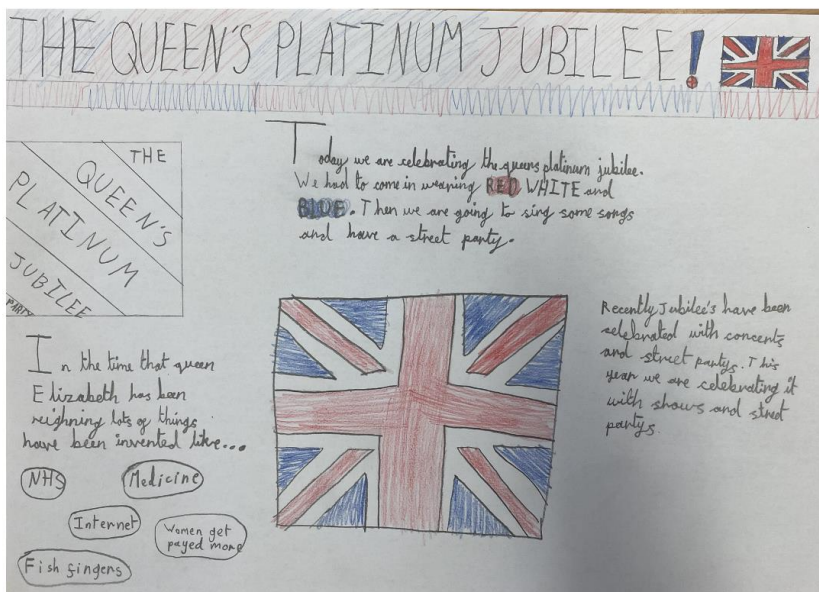 THE QUEEN'S PLATINUM JUBILEE!
THE
QUEEN'S
PLATINUM
JUBILEE
PARTY
Today we are celebrating the queens platinum jubilee.
We had to come in wearing RED WHITE and
BLUE. Then we are going to sing some songs
and have a street party.
In the time that queen
Elizabeth has been
reighning lots of things
have been invented like...
NHS
Medicine
Internet
Women get
payed more
Fish fingers
Recently Jubilee's have been
celebrated with concents
and street partys. This
year we are celebrating it
with shows and street
partys